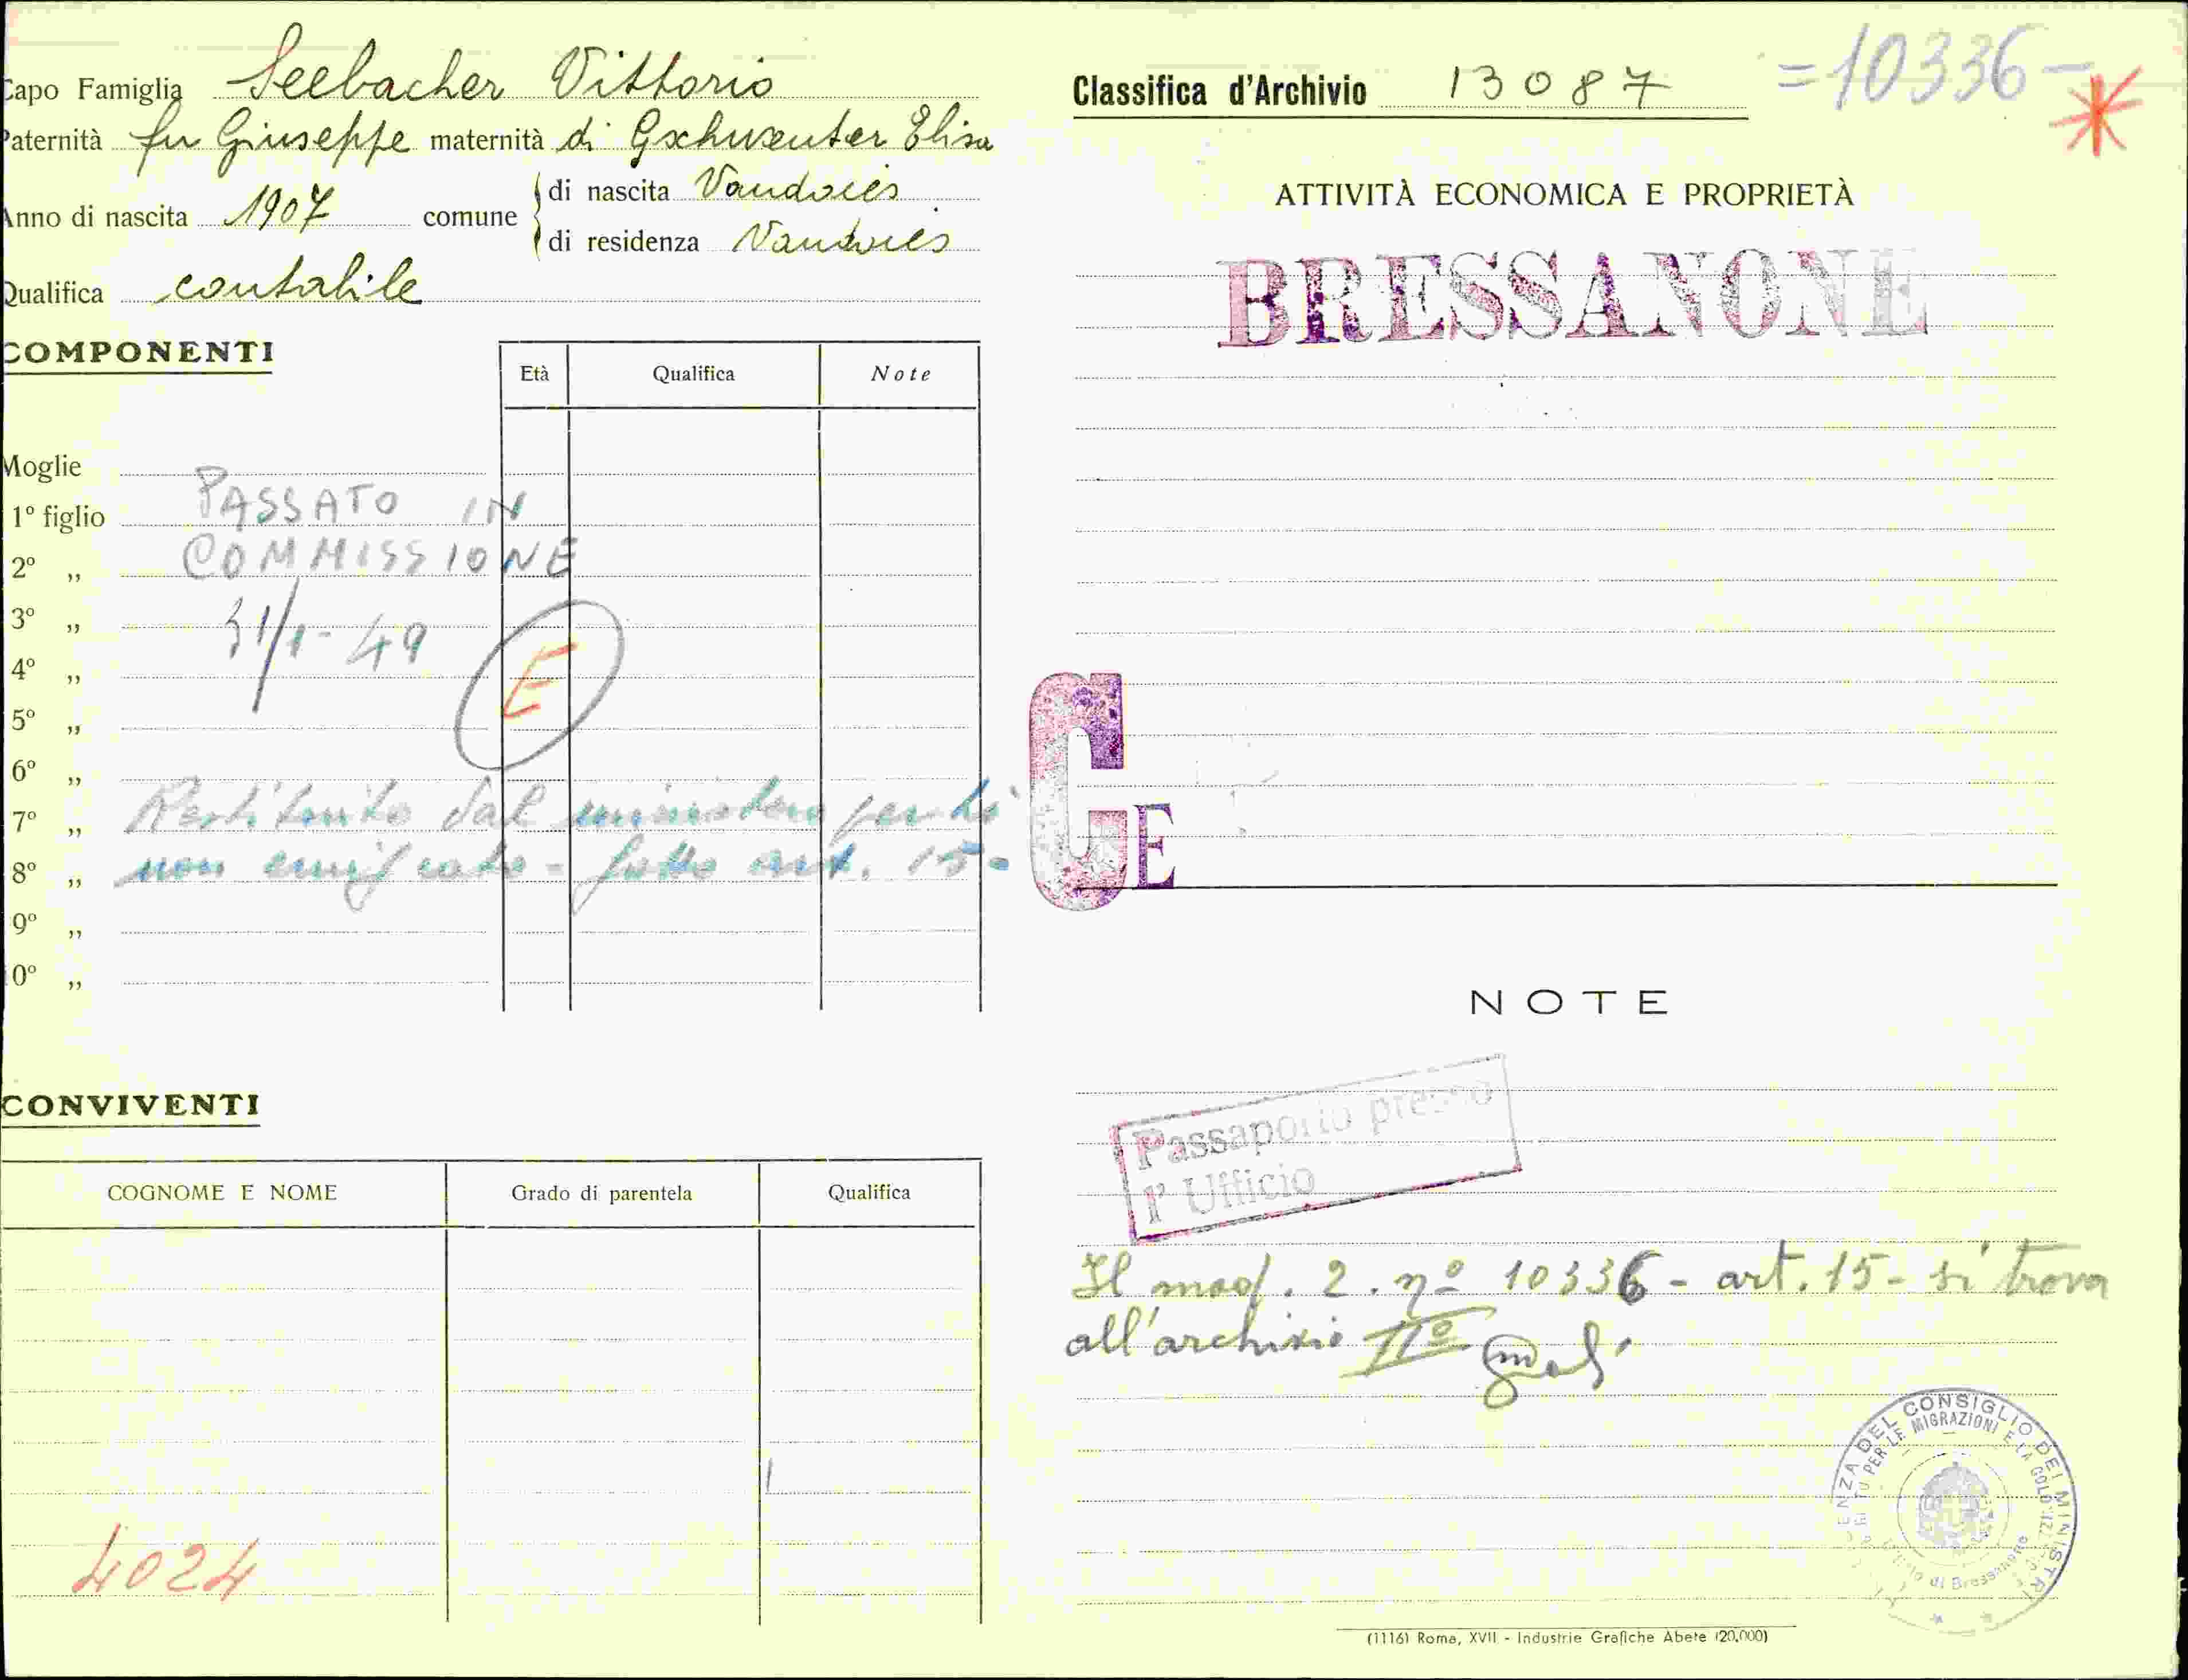 Capo Famiglia Seebacher Vittorio
Paternità fu Giuseppe maternità di Gschwenter Elisa
Anno di nascita 1907 comune
di nascita Vandoies
di residenza Vandoies
Qualifica contabile
COMPONENTI
Età Qualifica Note
Moglie
1º figlio
PASSATO IN
2º „
COMMISSIONE
3º „
31/1-49
4º „
E
5º „
6º „
7º „
Restituito dal ministero perchè
8º „
non emigrato - fatto art. 15-
9º „
10º „
CONVIVENTI
COGNOME E NOME Grado di parentela Qualifica
4024
Classifica d'Archivio 13087
=10336-
ATTIVITÀ ECONOMICA E PROPRIETÀ
BRESSANONE
GE
NOTE
Passaporto presso
l'Ufficio
Il mod. 2. nº 10336 - art. 15 - si trova
all'archivio IIº
CONSIGLIO DEI MINISTRI
PER LE MIGRAZIONI E LA
di Bressanone
(1116) Roma, XVII - Industrie Grafiche Abete (20.000)